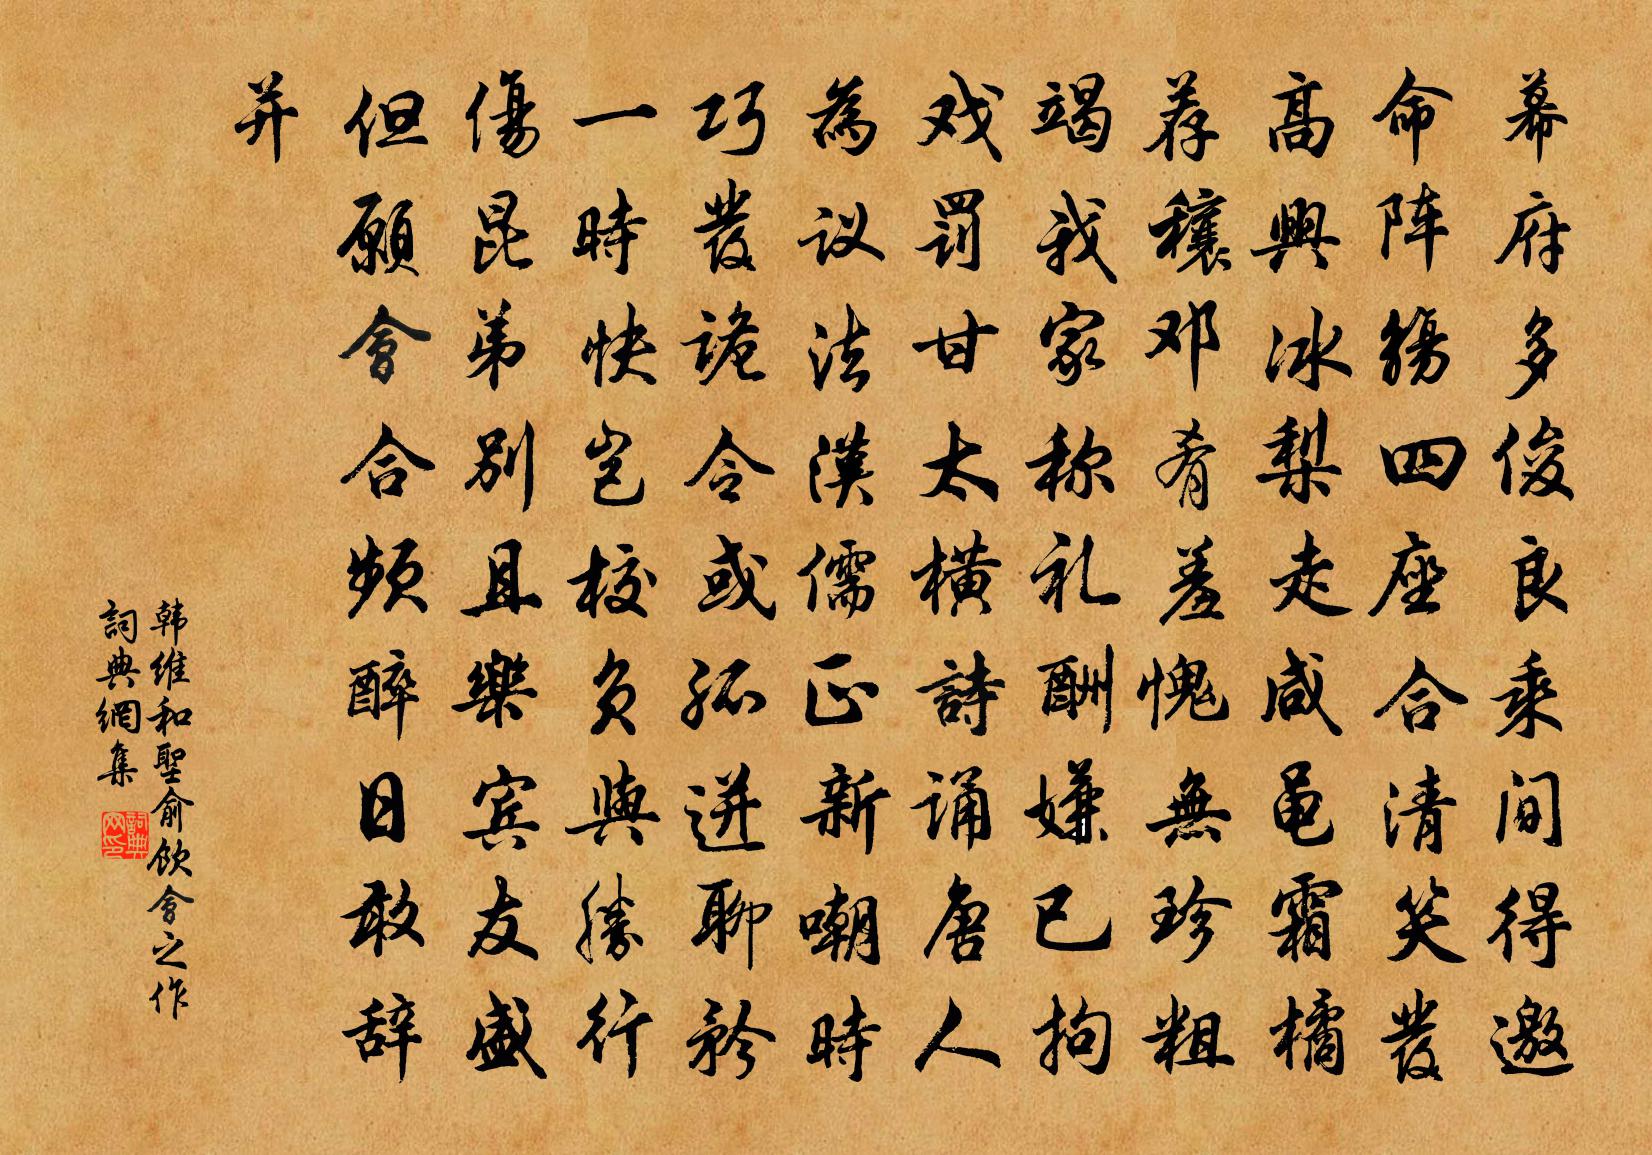 幕府多俊良乘间得邀
命阵觴四座合清笑發
高興冰梨走咸黾霜橘
荐穰邓肴羞愧無珍粗
竭我家称礼酬嫌已拘
戏罰甘太横詩诵唐人
為议法漢儒正新嘲時
巧發詭令或孤迸聊矜
一時快岂校负與勝行
傷昆弟别且樂宾友盛
但願會合频醉日敢辞
并
韩維和聖俞飲會之作
詞典網集
詞典网印